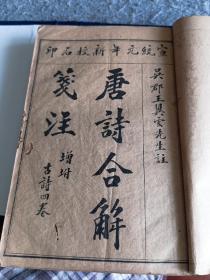 宣統元年新校石印
吳郡王翼雲先生註
唐詩合解
箋注
增坿
古詩四卷